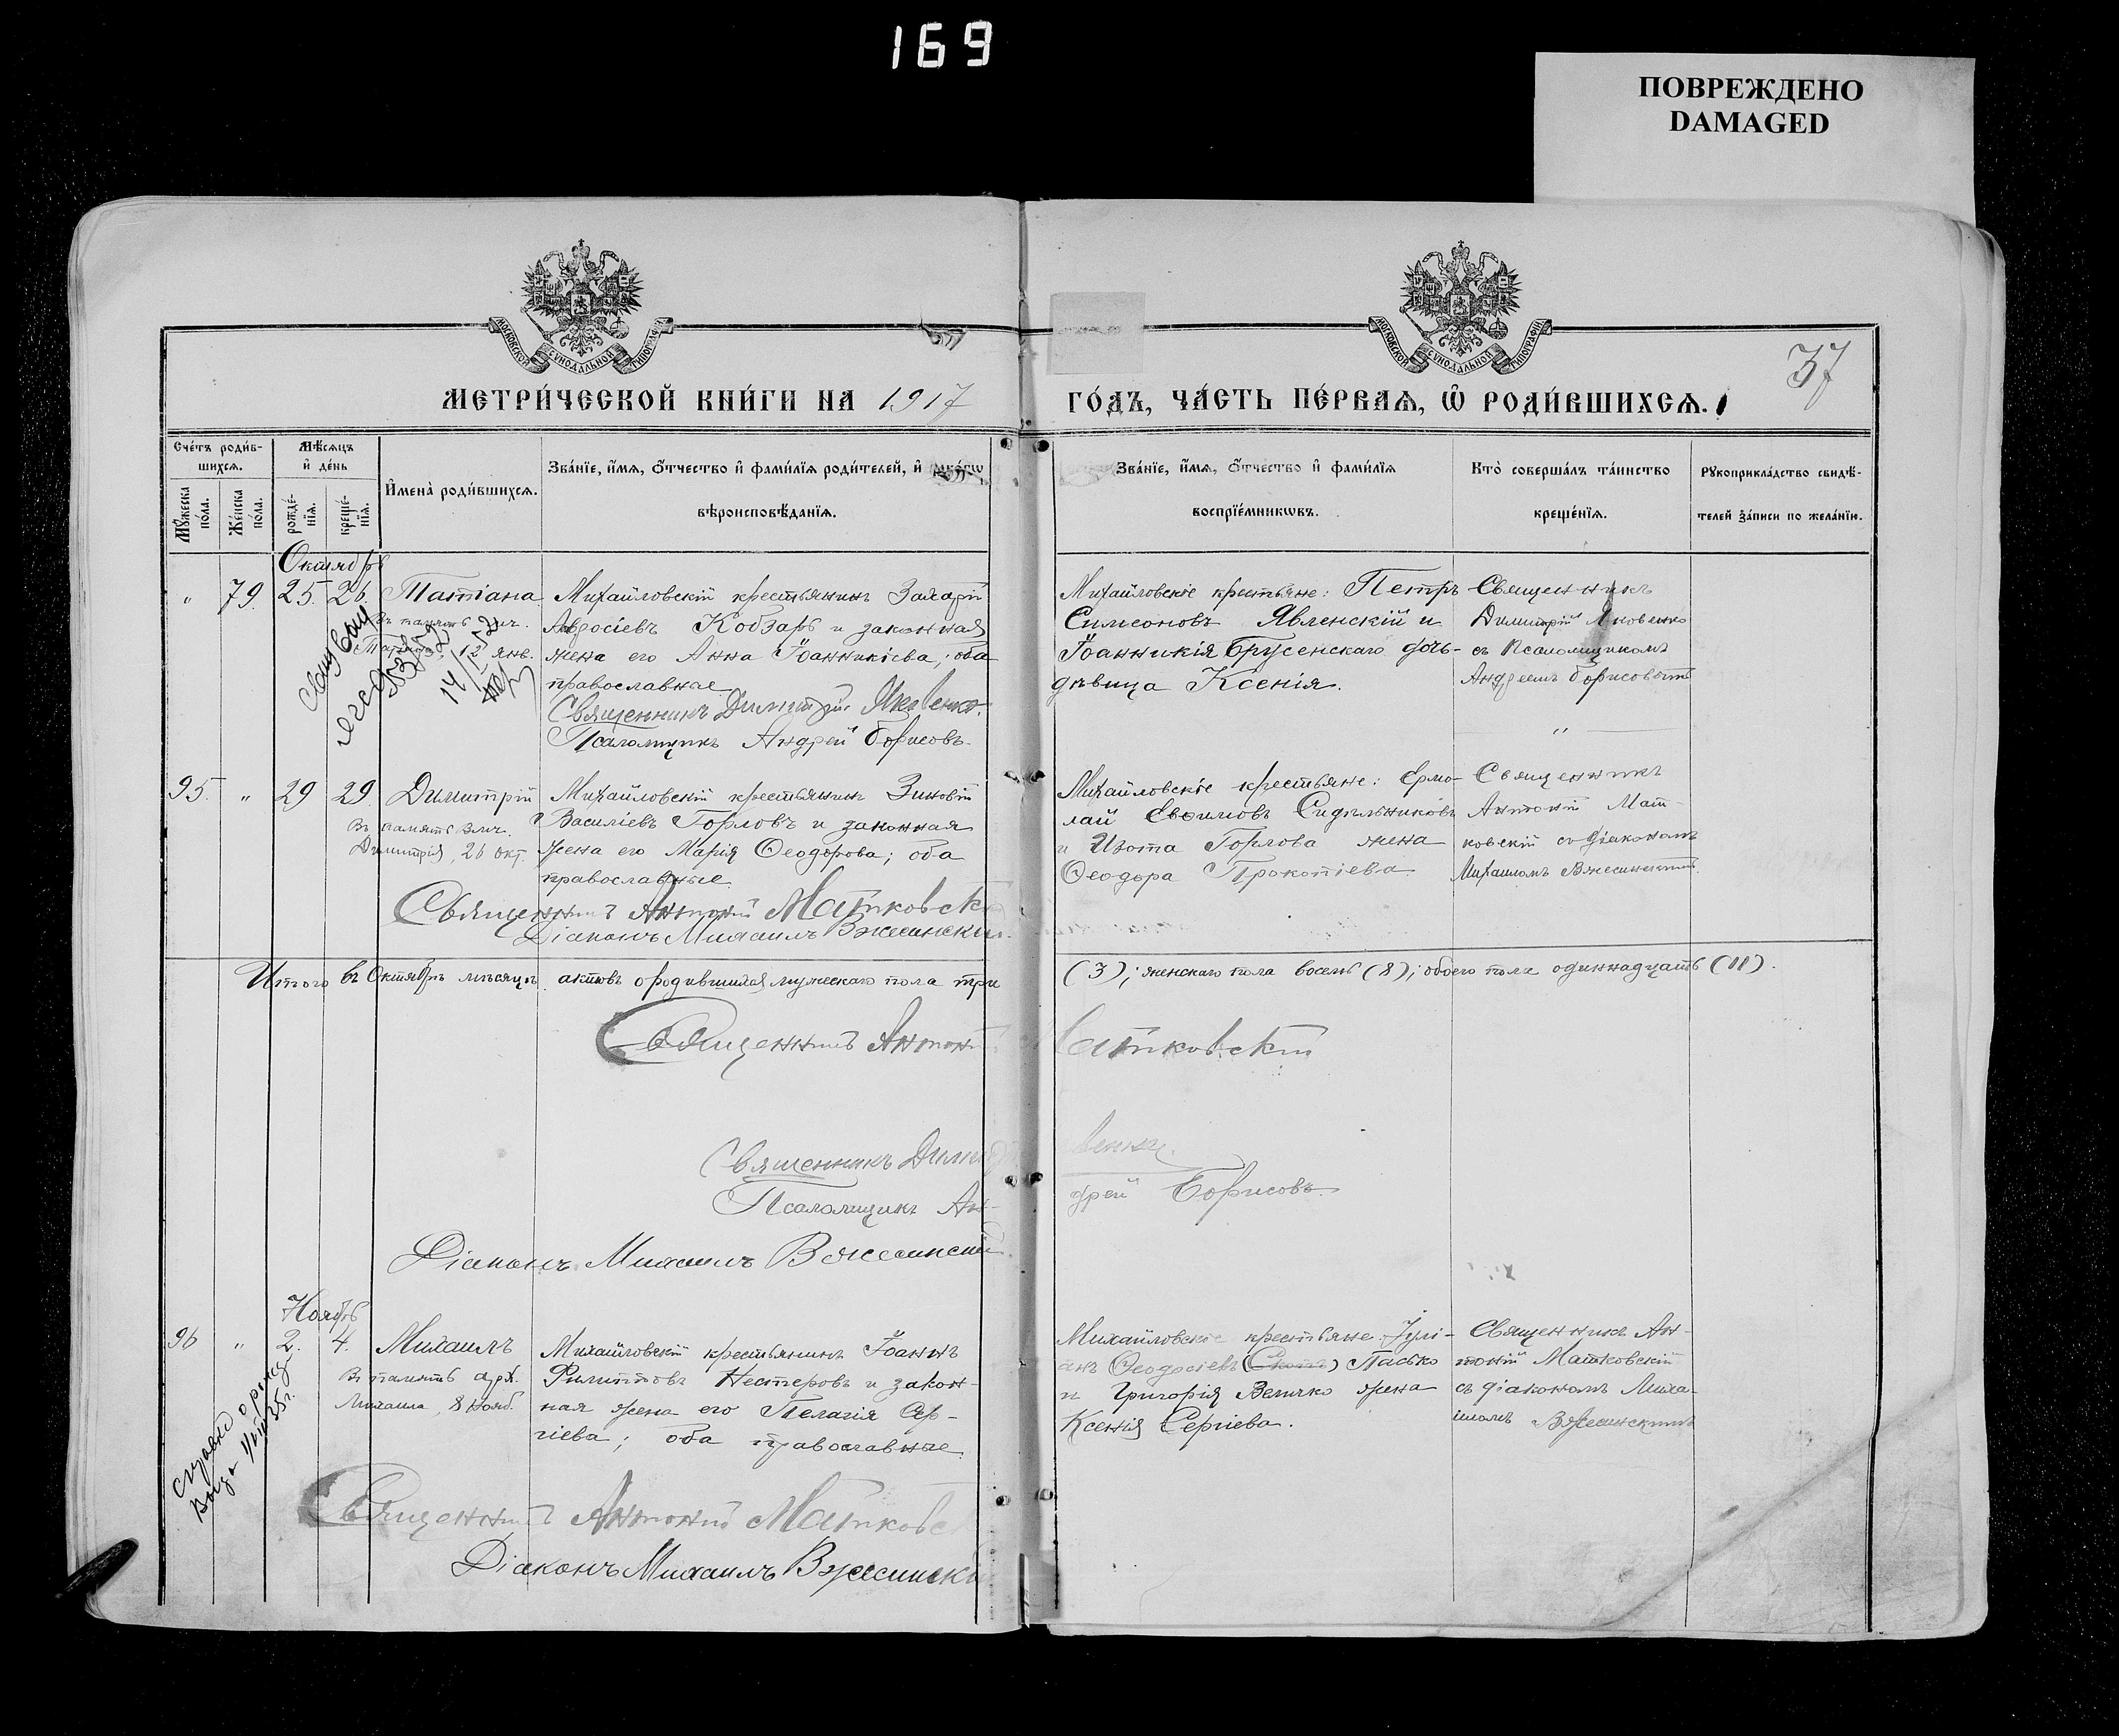 169
ПОВРЕЖДЕНО
DAMAGED
МОСКОВСКОЙ СѴНОДАЛЬНОЙ ТИПОГРАФІИ
МОСКОВСКОЙ СѴНОДАЛЬНОЙ ТИПОГРАФІИ
37
МЕТРИ́ЧЕСКОЙ КНИ́ГИ НА 1917
ГО́ДЪ, ЧА́СТЬ ПЕ́РВАѦ, Ѡ҆ РОДИ́ВШИХСѦ.
Сче́тъ роди́в-
шихсѧ.
Мꙋ́жеска по́ла.
Же́нска по́ла.
Мѣ́сѧцъ
и҆ де́нь
рожде́-
нїѧ.
креще́-
нїѧ.
И҆мена̀ роди́вшихсѧ.
Зва́нїе, и҆́мѧ, ѻ҆́тчество и҆ фами́лїѧ роди́телей, и҆
вѣроисповѣ́данїѧ.
Зва́нїе, и҆́мѧ, ѻ҆́тчество и҆ фами́лїѧ
воспрїе́мникѡвъ.
Кто̀ соверша́лъ та́инство
креще́нїѧ.
Рꙋкоприкла́дство свидѣ́-
телей за́писи по жела́нїю.
Октябрь
" 79. 25. 26. Татіана
Въ память муч.
Татіаны, 12 янв.
14/I 52
Михайловскій крестьянинъ Захарій
Авдосіевъ Кобзарь и законная
жена его Анна Іоанникіева; оба
православные
Священникъ Димитрій Яковенко.
Псаломщикъ Андрей Борисовъ.
Михайловскіе крестьяне: Петръ
Симеоновъ Явленскій и
Іоанникія Брусенскаго дочь-
дѣвица Ксенія.
Священникъ
Димитрій Яковенко
съ Псаломщикомъ
Андреемъ Борисовымъ
"
95. " 29 29. Димитрій
Въ память влмч.
Димитрія, 26 окт.
Михайловскій крестьянинъ Зиновій
Василіевъ Горловъ и законная
жена его Марія Ѳеодорова; оба
православные.
Священникъ Антоній Матковскій
Діаконъ Михаилъ Вжесинскій.
Михайловскіе крестьяне: Ермо-
лай Евѳимовъ Сидѣльниковъ
и Изота Горлова жена
Ѳеодора Прокопіева.
Священникъ
Антоній Мат-
ковскій съ діакономъ
Михаиломъ Вжесинскимъ.
Итого въ Октябрѣ мѣсяцѣ актовъ о родившихся мужескаго пола три
(3); женскаго пола восемь (8); обоего пола одиннадцать (11).
Священникъ Антоній
Матковскій
Священникъ Димит
венко.
Псаломщикъ Ан-
дрей Борисовъ.
Діаконъ Михаилъ Вжесинскій.
Ноябрь
96 " 2. 4. Михаилъ
Въ память арх.
Михаила, 8 нояб.
Михайловскій крестьянинъ Іоаннъ
Филипповъ Нестеровъ и закон-
ная жена его Пелагія Сер-
гіева; оба православные.
Священникъ Антоній Матковск
Діаконъ Михаилъ Вжесинскій
Михайловскіе крестьяне: Іулі-
анъ Ѳеодосіевъ Пасько
и Григорія Величко жена
Ксенія Сергіева.
Священникъ Ан-
тоній Матковскій
съ діакономъ Миха-
иломъ Вжесинскимъ